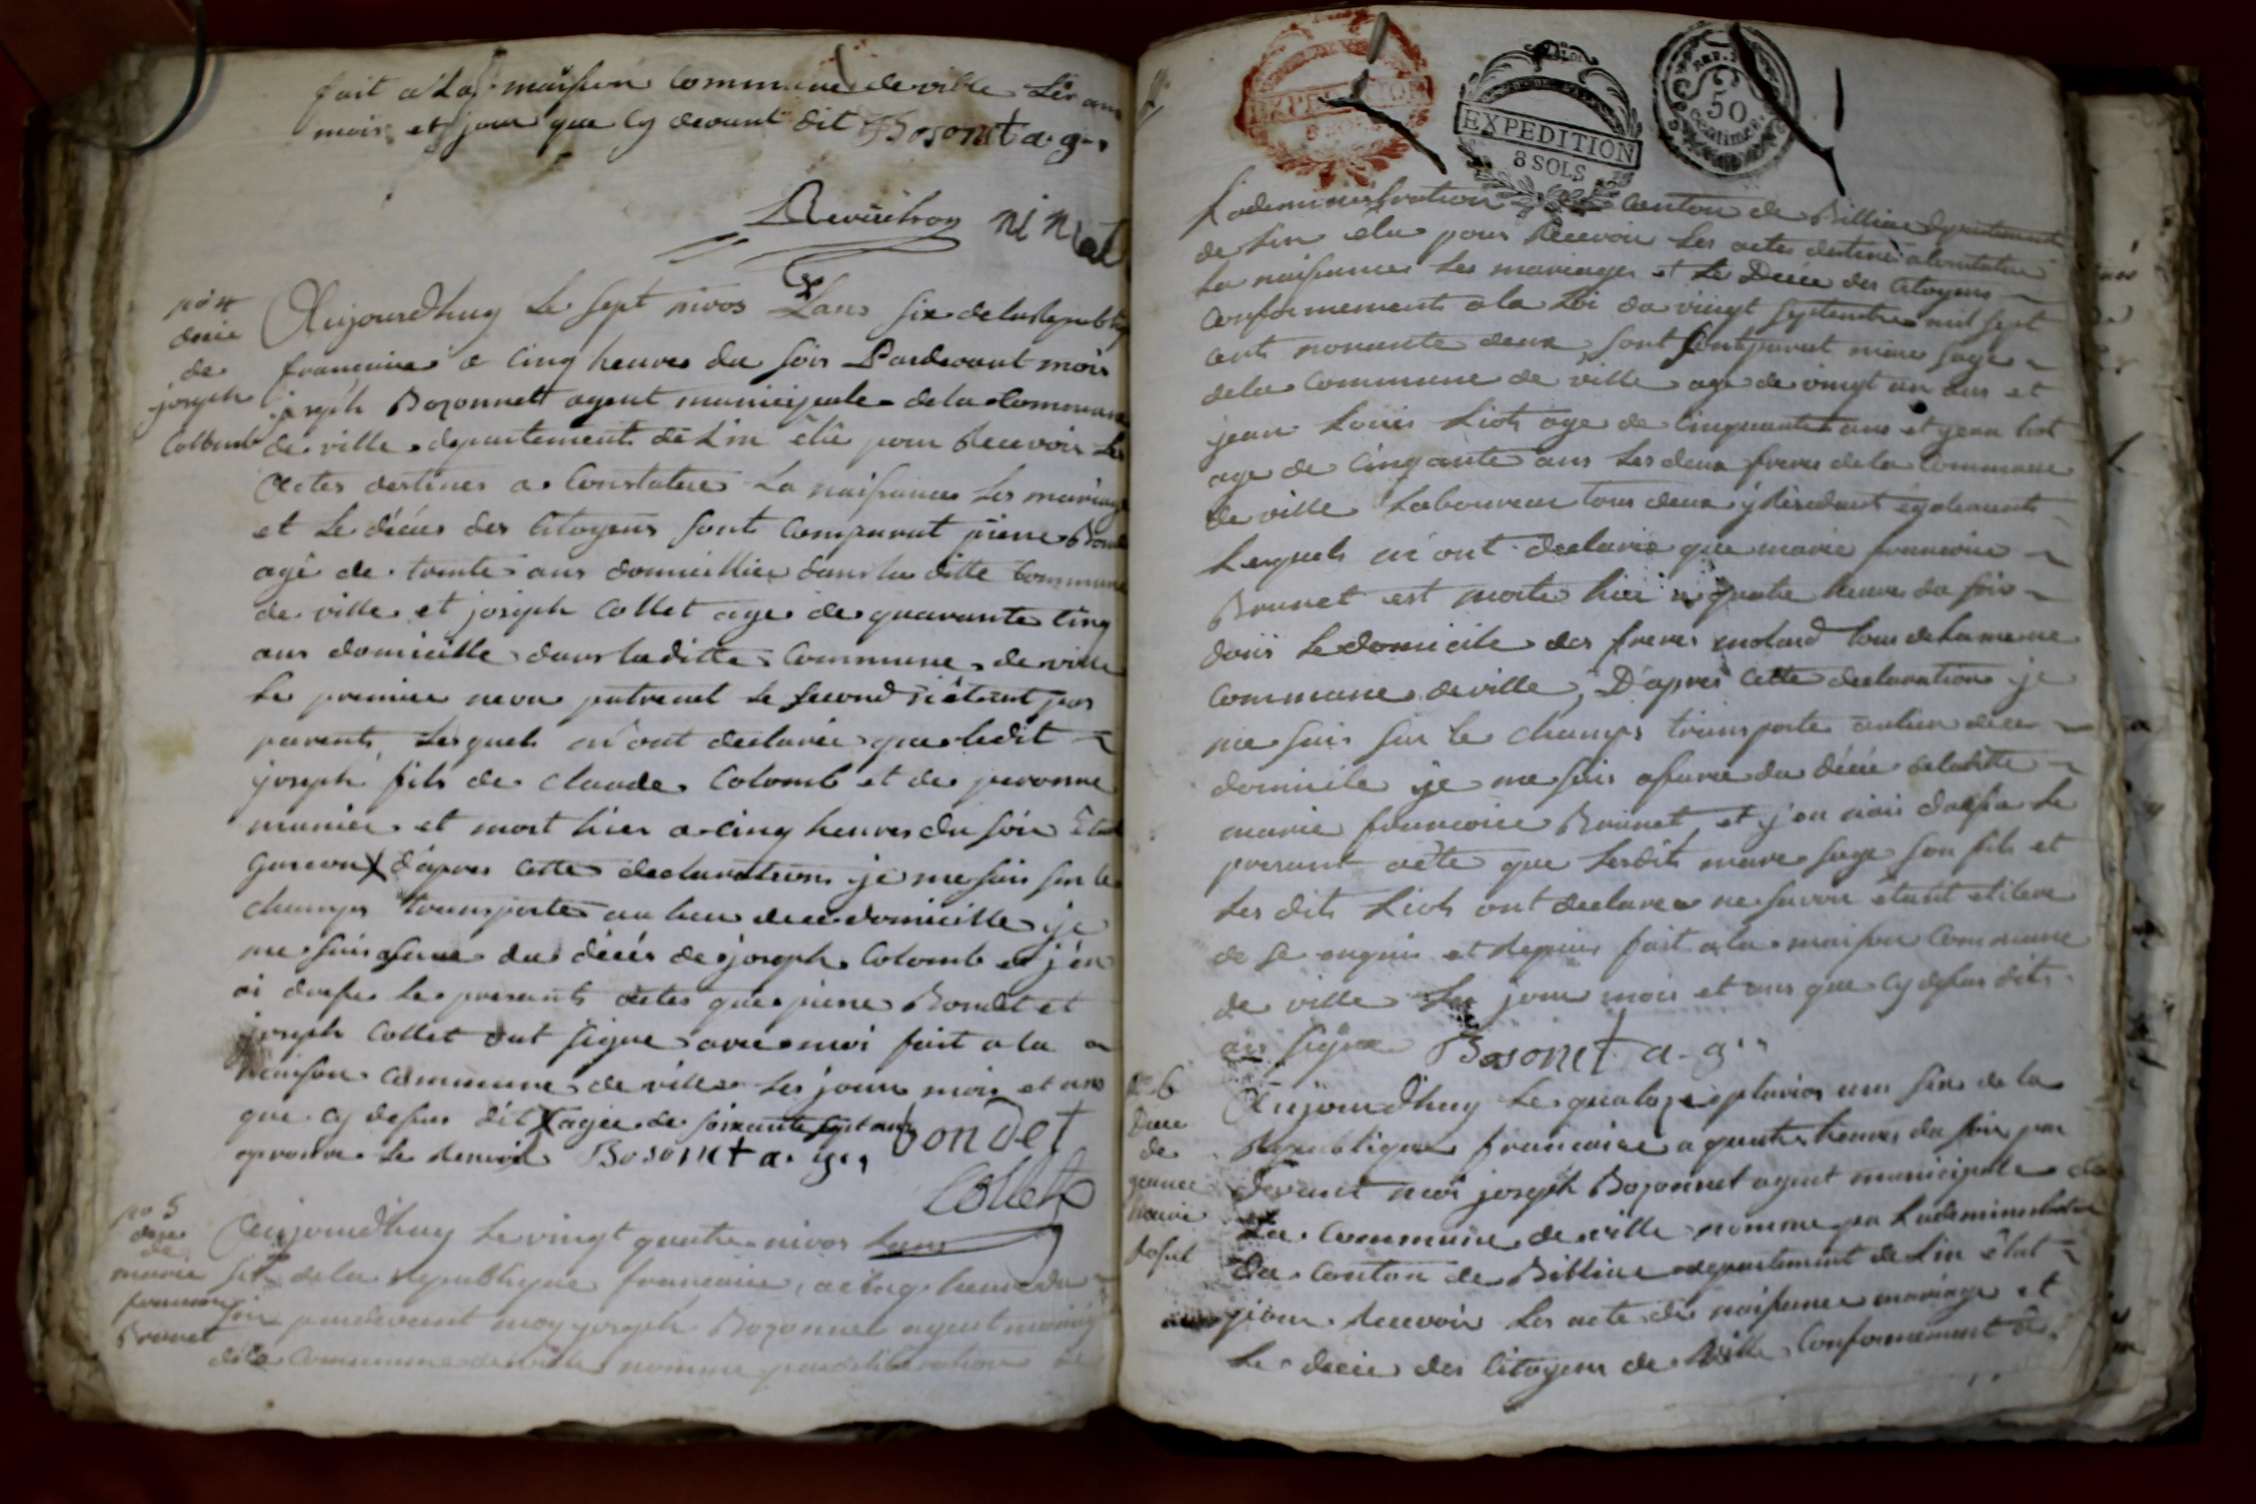 fait a la maison commune de ville les ans
mois et jour que cy devant dit Bosonet a. g.
Revuihoy ninet
no 4
décée
de
joseph
Colomb
Aujourdhuy le sept nivos Lans six de la Republi
francoise a cinq heures du soir Pardevant mois
joseph Bozonnett agent municipale de la Commune
de ville departement de Lin élû pour Recevoir les
Actes destinés a Constatuer La naissance Les mariag
et Le décés des Citoyens sont Comparut pierre Bond
agé de trente ans domicillier dans la ditte Commune
de ville et joseph Collet age de quarante Cinq
ans domicille dans la ditte Commune de ville
le premier neveu paternel le second n'étant pas
parent, Lesquels m'ont declarée que ledit
joseph fils de Claude Colomb et de peronne
munier et mort hier a cinq heures du soir étan
garcon X d'apres Cette declaration je me suis sur le
champs transporté au lieu de ce domicille je
me suis assuré du décés de joseph Colomb et j'en
ai dressé le presents actes que piere Bondet et
joseph Collet ont signe avec moi fait a la
maison Commune de ville Les jour mois et ans
que cy dessus dit X agée de soixante sept ans
aprouve le Renvoi Bosonet a. g. bondet
Collet
no 5
de
marie
francoise
Brunet
Aujourdhuy Le vingt quatre nivos Lans
six de la Republique francoise, a cinq heure du
soir pardevent moy joseph Bozonnet agent municip
de la Commune de ville nomme par deliberation de
EXPEDITION
8 SOLS
EXPEDITION
8 SOLS
REP. F.
50
Centimes
Ladeministration canton de Billiac departement
de Lin elu pour Recevoir Les actes destiné a Constatuer
La naissance Les mariages et Le Decée des Citoyens
Conformement a la Loi du vingt septembre mil sept
cents nonante deux sont Comparut mine sage
de la Commune de ville age de vingt un ans et
jean Louis Liot age de Cinquante ans et jean Liot
age de Cinqante ans Les deux freres de la Commune
de ville Laboureur tous deux y Résidant également
Lesquels m'ont declarée que marie francoise
Brunet est morte hier a quatre heure du soir
dans Le domicile des freres molard tous de la meme
Commune de ville, D'apres Cette declaration je
me suis sur le champs transporte au lieu de ce
domicile je me suis assuree du décée de la ditte
marie francoise Brunet et j'en ai dressé Le
presant acte que Lesdits mare sage son fils et
Les dits Liots ont declaree ne savoir étant
de se enquis et Requis fait a la maison Commune
de ville Les jour mois et ans que cy dessus dits
ai signe Bosonet a. g.
no 6
Décée
de
Aujourdhuy Le quatoze pluvios ans six de la
Republique francoise a quatre heures du soir par
devant moi joseph Bozonnet agent municipale de
La Commune de ville nomme par Ladeministration
du Canton de Billiac departement de Lin
pour Recevoir Les acte de naissance mariage et
Le décée des Citoyens de ville Conformement a